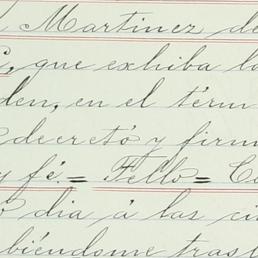 Martinez de
, que exhiba la
den, en el térm
decretó y firm
y fé.= Tello= Ce
dia á las ci
biéndome trasl